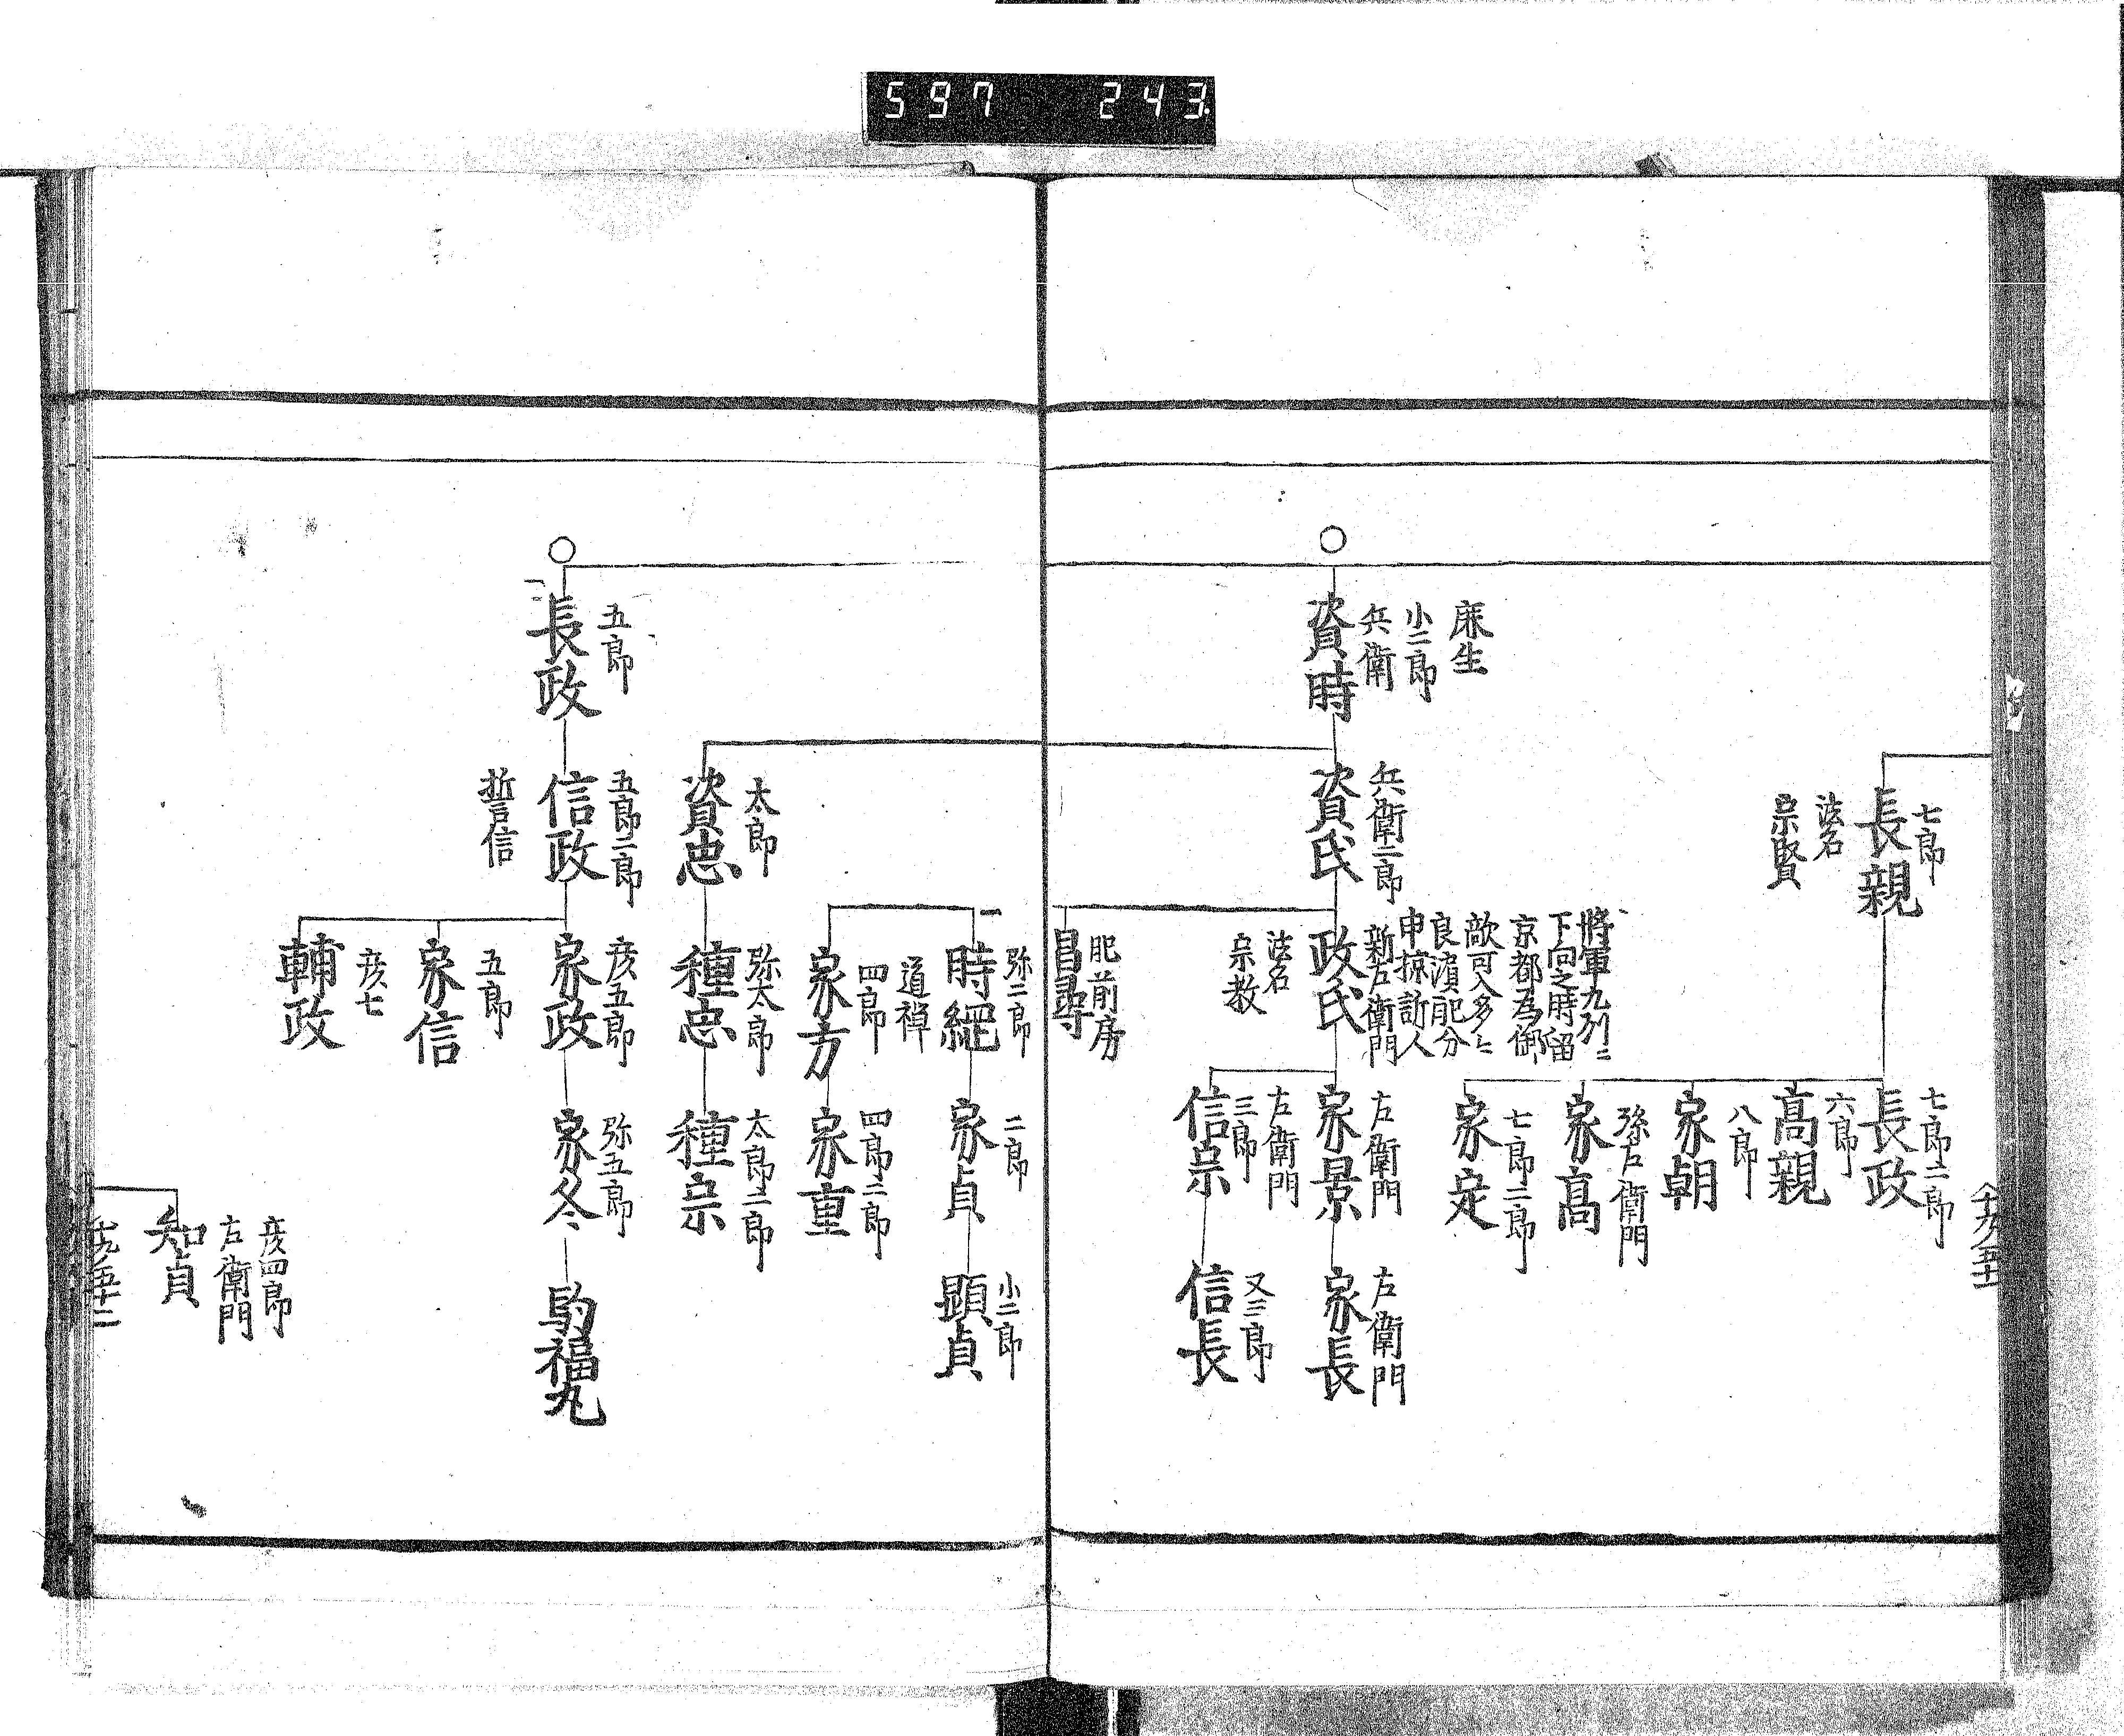 597 243
七郎
長親
法名
宗賢
七郎二郎
長政
六郎
高親
八郎
家朝
孫右衛門
家高
七郎二郎
家定
麻生
小二郎
兵衛
資時
兵衛二郎
資氏
將軍九列ニ
下向之時留
京都為御
敵可入多々
良濱配分
申掠訴人
新左衛門
政氏
法名
宗教
左衛門
家景
左衛門
家長
左衛門
三郎
信宗
又三郎
信長
肥前房
昌尋
弥二郎
時綱
道禅
二郎
家貞
小二郎
顕貞
四郎
家方
四郎二郎
家重
太郎
資忠
弥太郎
種忠
太郎二郎
種宗
五郎
長政
五郎二郎
信政
誓信
彦五郎
家政
弥五郎
家冬
駒福丸
五郎
家信
彦七
輔政
彦四郎
左衛門
知貞